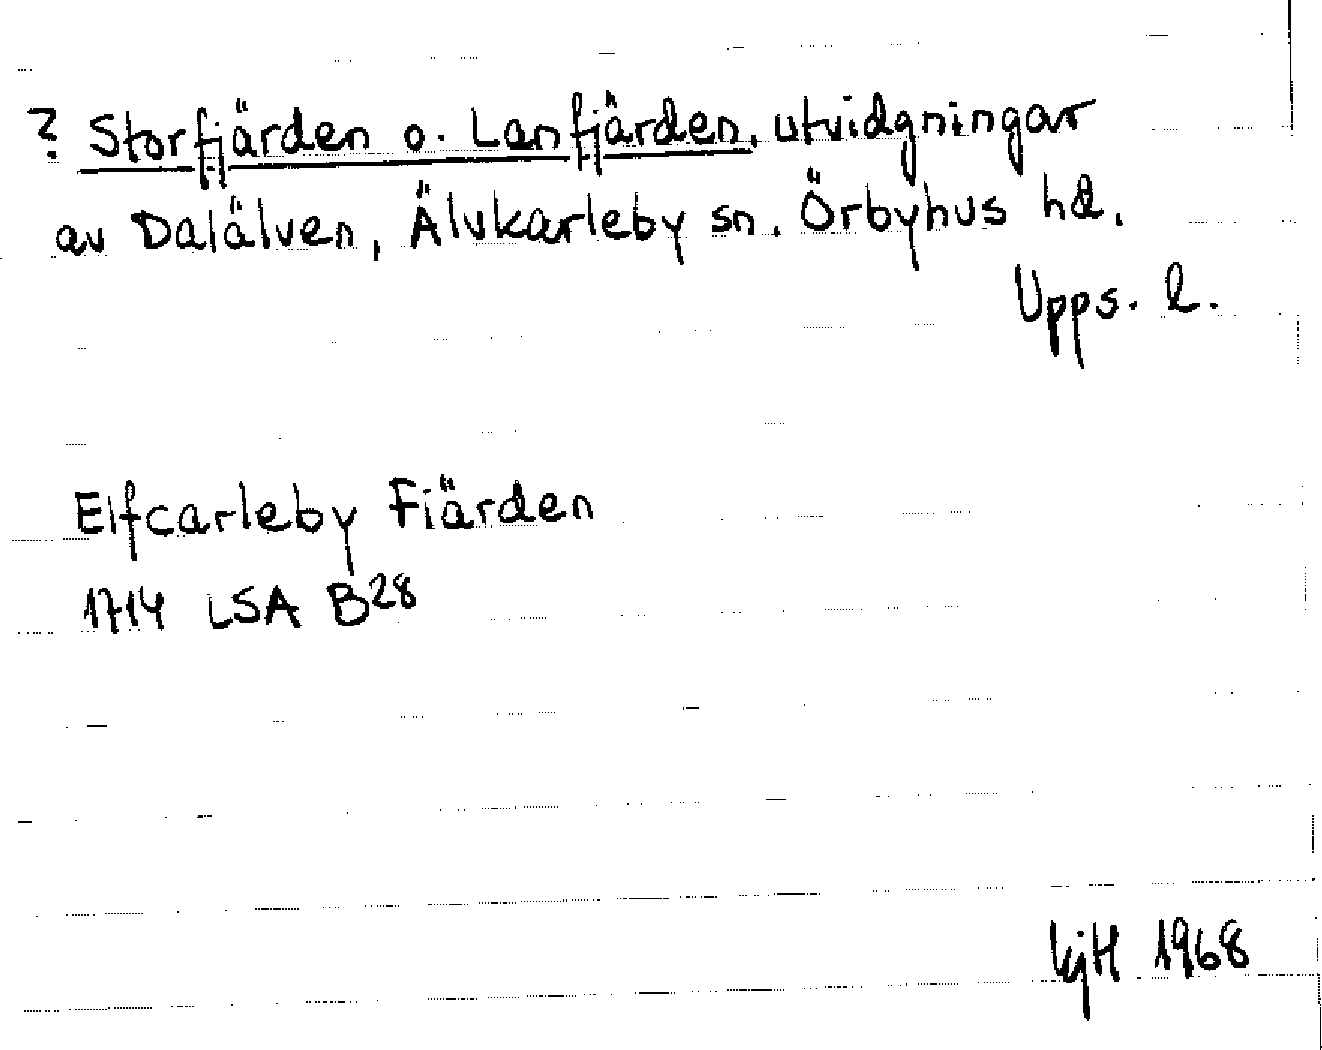 ? Storfjärden o. Lanfjärden, utvidgningar
av Dalälven, Älvkarleby sn. Örbyhus hd.
Upps. l.
Elfcarleby Fiärden
1714 LSA B28
kjH 1968